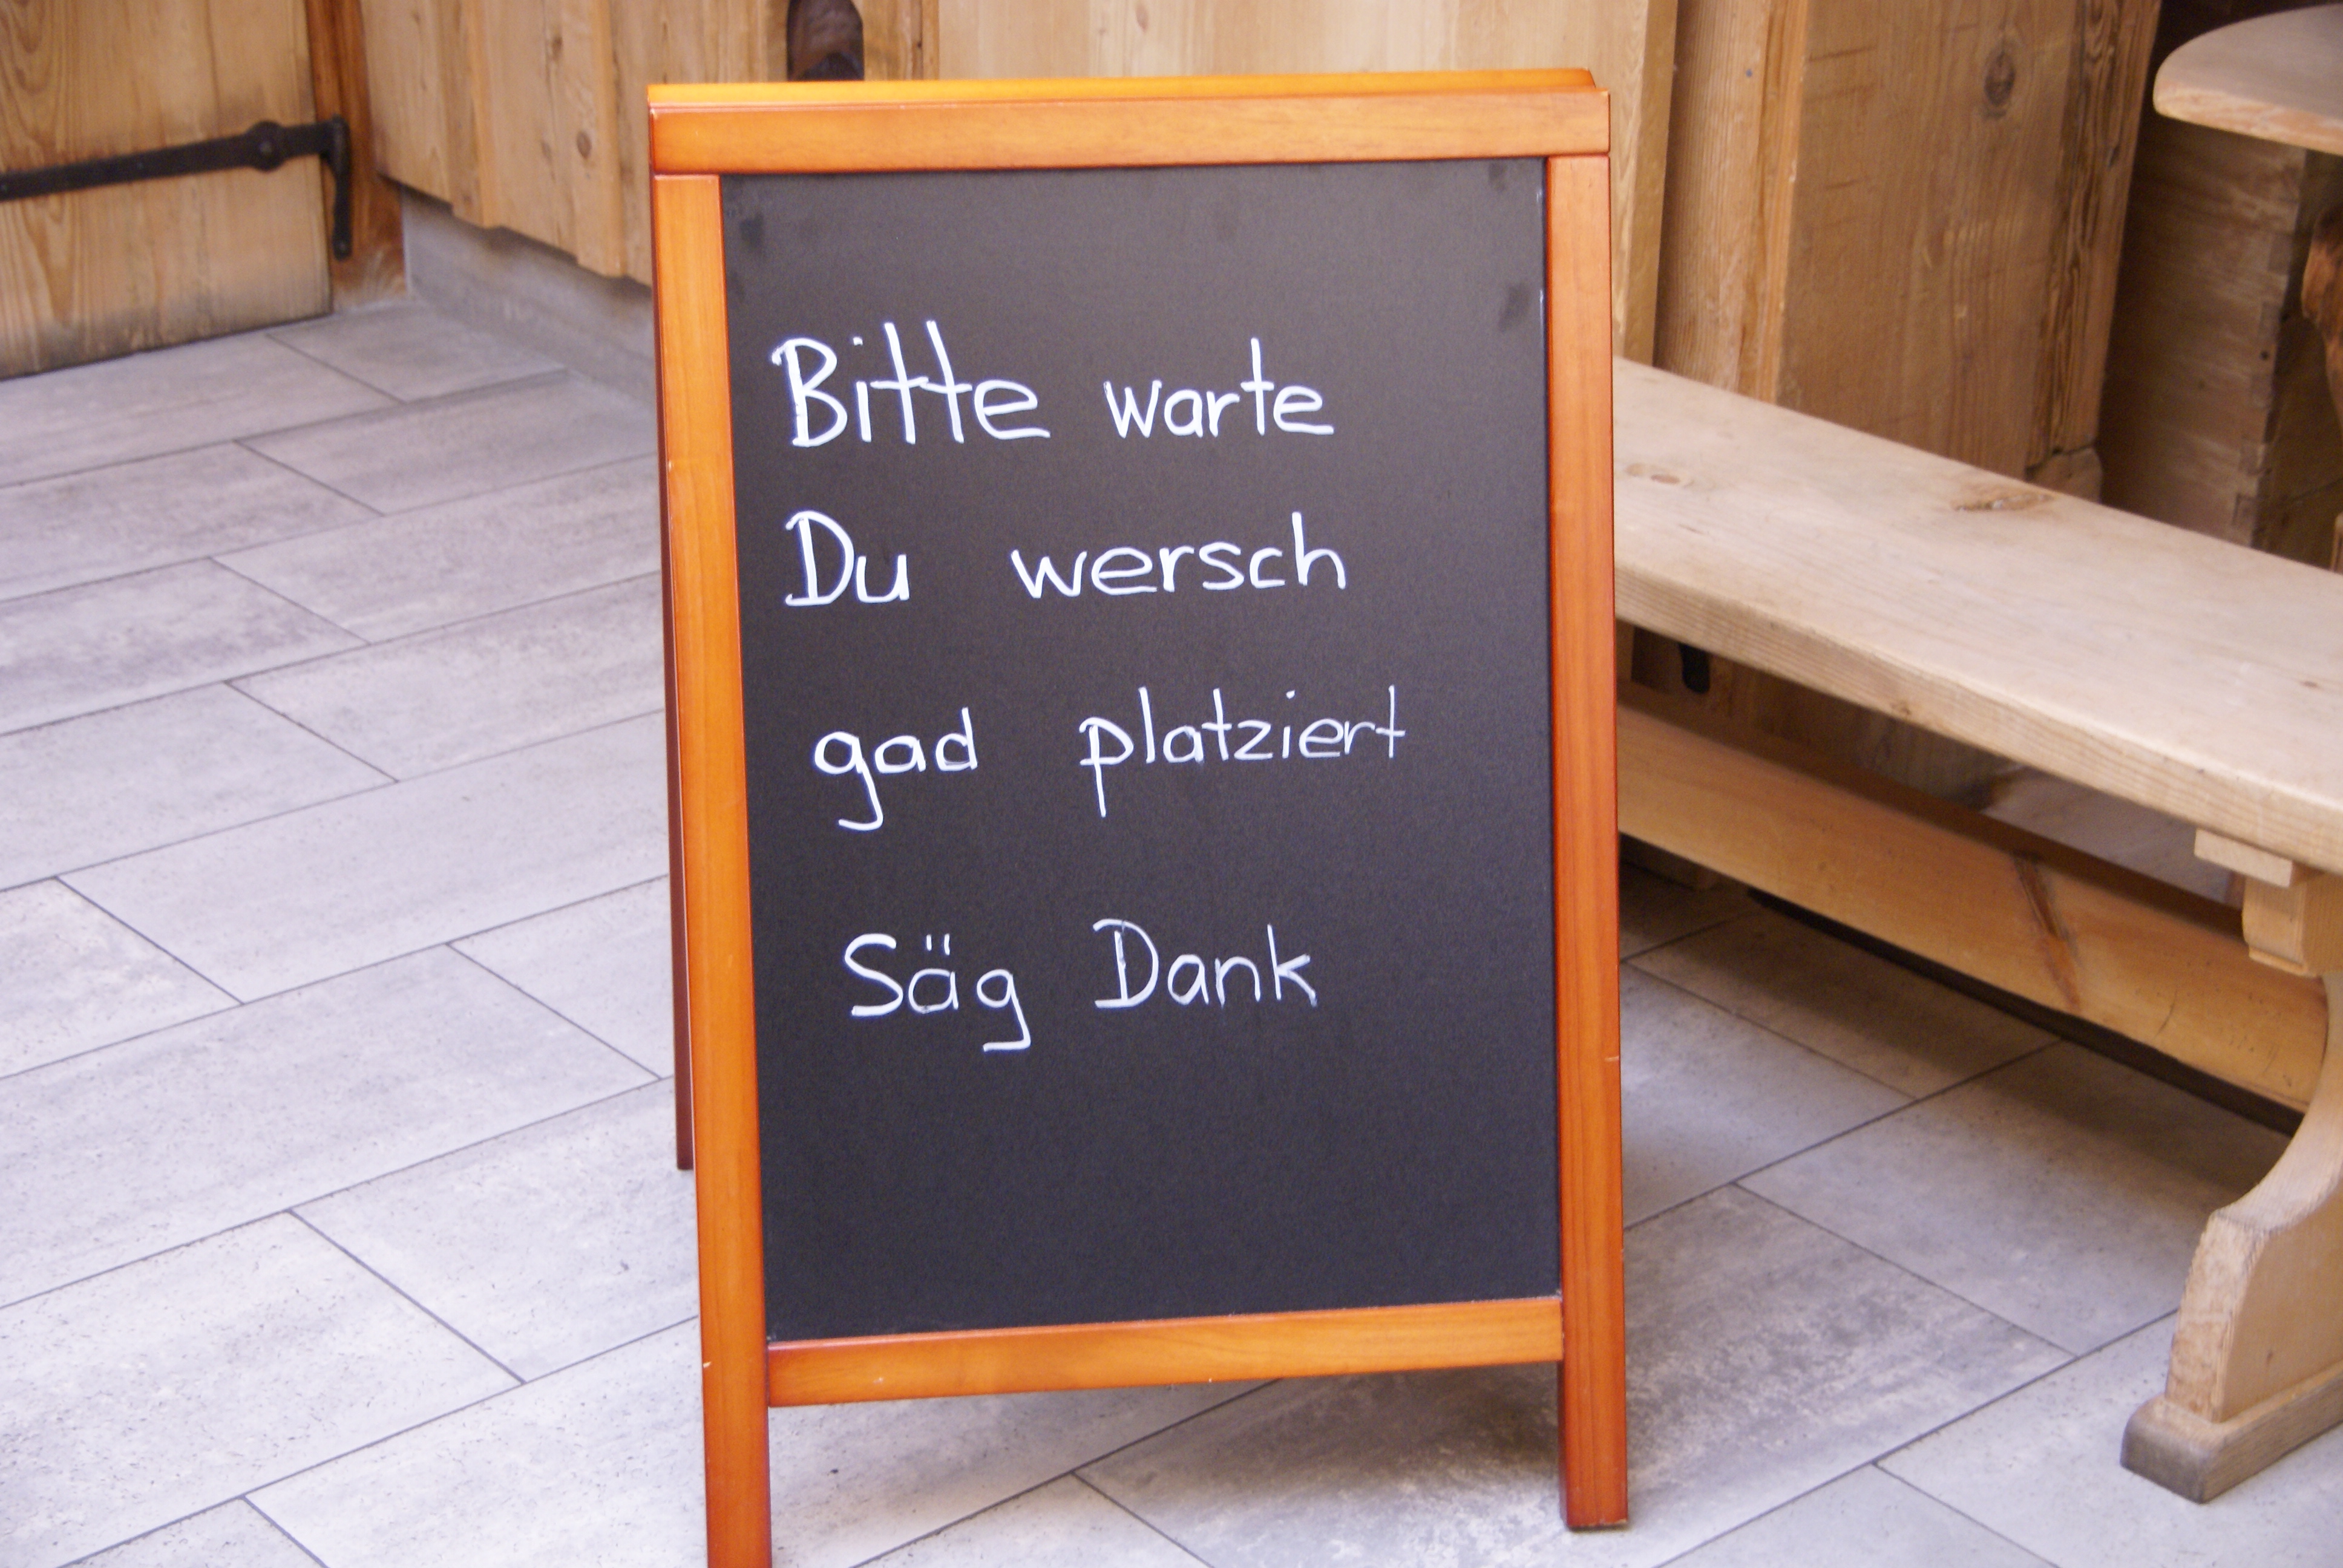 Bitte warte
Du wersch
gad platziert
Säg Dank